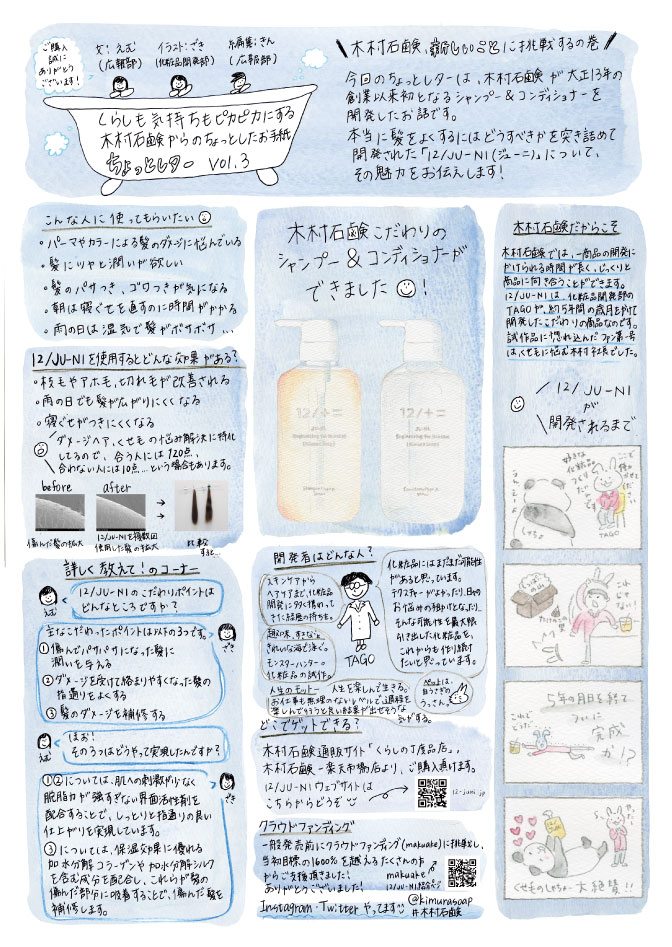 ご購入
誠に
ありがとう
ございます!
文:えむ
(広報部)
イラスト:ざき
(化粧品開発部)
編集:きん
(広報部)
くらしも気持ちもピカピカにする
木村石鹸からのちょっとしたお手紙
ちょっとレター vol.3
に挑戦するの巻
今回のちょっとレターは、木村石鹸が大正13年の
創業以来初となるシャンプー&コンディショナーを
開発したお話です。
本当に髪をよくするにはどうすべきかを突き詰めて
開発された「12/JU-NI(ジューニ)」について、
その魅力をお伝えします!
こんな人に使ってもらいたい
・パーマやカラーによる髪のダメージに悩んでいる
・髪にツヤと潤いが欲しい
・髪のパサつき、ゴワつきが気になる
・朝は寝ぐせを直すのに時間がかかる
・雨の日は湿気で髪がボサボサ...
12/JU-NIを使用するとどんな効果がある?
・枝毛やアホ毛、切れ毛が改善される
・雨の日でも髪が広がりにくくなる
・寝ぐせがつきにくくなる
ダメージヘア、くせ毛の悩み解決に特化
してるので、合う人には120点、
合わない人には10点...という場合もあります。
before
after
傷んだ髪の拡大
12/JU-NIを複数回
使用した髪の拡大
比較
すると...
木村石鹸こだわりの
シャンプー&コンディショナーが
できました!
12/+=
JU-NI
12/+=
JU-NI
木村石鹸だからこそ
木村石鹸では、一商品の開発に
かけられる時間が長く、じっくりと
商品に向き合うことができます。
12/JU-NIは、化粧品開発部の
TAGOが、約5年間の歳月をかけて
開発したこだわりの商品なのです。
試作品に惚れ込んだファン第一号
はくせ毛に悩む木村社長でした。
12/JU-NI
が
開発されるまで
好きな
化粧品
つくって
TAGO
5年の月日を経て
ついに
完成
か!?
くせ毛のしゃちょー大絶賛!!
詳しく教えて!のコーナー
12/JU-NIのこだわりポイントは
どんなところですか?
えむ
主なこだわったポイントは以下の3つです。
①傷んでパサパサになった髪に
潤いを与える
②ダメージを受けて絡まりやすくなった髪の
指通りをよくする
③髪のダメージを補修する
ざき
ほお!
その3つはどうやって実現したんですか?
えむ
①②については、肌への刺激が少なく
脱脂力が強すぎない界面活性剤を
配合することで、しっとりと指通りの良い
仕上がりを実現しています。
③については、保湿効果に優れる
加水分解コラーゲンや加水分解シルク
を含む成分を配合し、これらが髪の
傷んだ部分に吸着することで、傷んだ髪を
補修します。
ざき
開発者はどんな人?
スキンケアから
ヘアケアまで、化粧品
開発に多く携わって
きた経歴の持ち主。
きれいな海で泳ぐ。
モンスターハンター。
化粧品の試作。
TAGO
化粧品にはまだまだ可能性
があると思っています。
テクスチャーがよかったり、日々の
お悩みの助けとなったり、
そんな可能性を最大限
引き出した化粧品を、
これからも作り続け
たいと思っています。
人生のモットー 人生を楽しんで生きる。
お仕事も無理のないレベルで過程を
楽しんで行うと良い結果が出せそうな
気がする。
ペットは、
うさぎの
うっさん。
どこでゲットできる?
木村石鹸通販サイト「くらしの丁度品店」、
木村石鹸-楽天市場店より、ご購入頂けます。
12/JU-NIウェブサイトは
こちらからどうぞ
12-juni.jp
クラウドファンディング
一般発売前にクラウドファンディング(makuake)に挑戦し、
当初目標の1600%を越えるたくさんの方
からご支援頂きました!
ありがとうございました!
makuake
12/JU-NI紹介ページ
Instagram・Twitterやってます
@kimurasoap
#木村石鹸